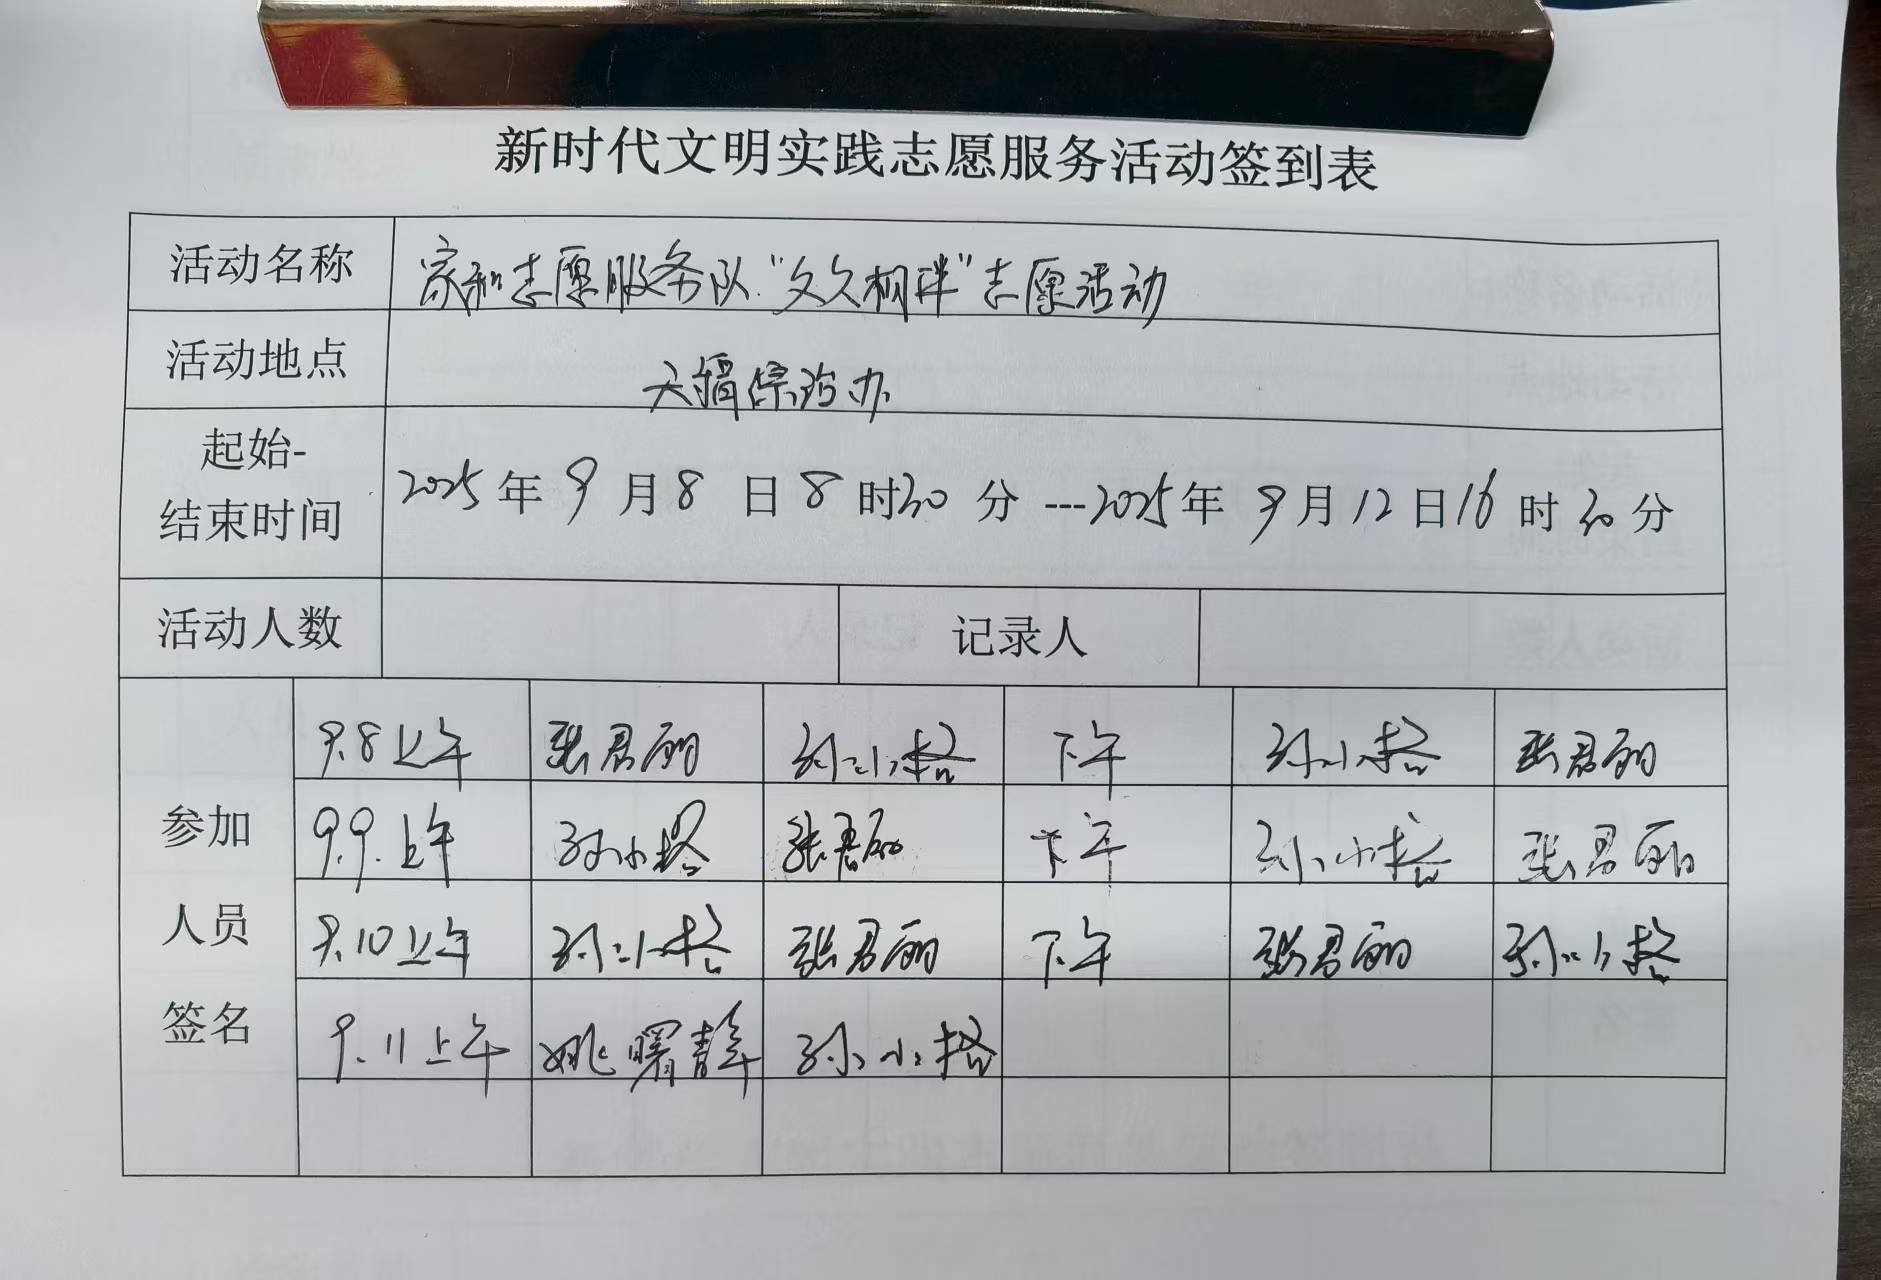 新时代文明实践志愿服务活动签到表
活动名称 家和志愿服务队"久久相伴"志愿活动
活动地点 综治办
起始-
结束时间 2025年9月8日8时30分---2025年9月12日16时30分
活动人数 记录人
参加
人员
签名
9.8上午 张君丽 孙小格 下午 孙小格 张君丽
9.9.上午 孙小格 张君丽 下午 孙小格 张君丽
9.10上午 孙小格 张君丽 下午 张君丽 孙小格
9.11上午 姚曙静 孙小格